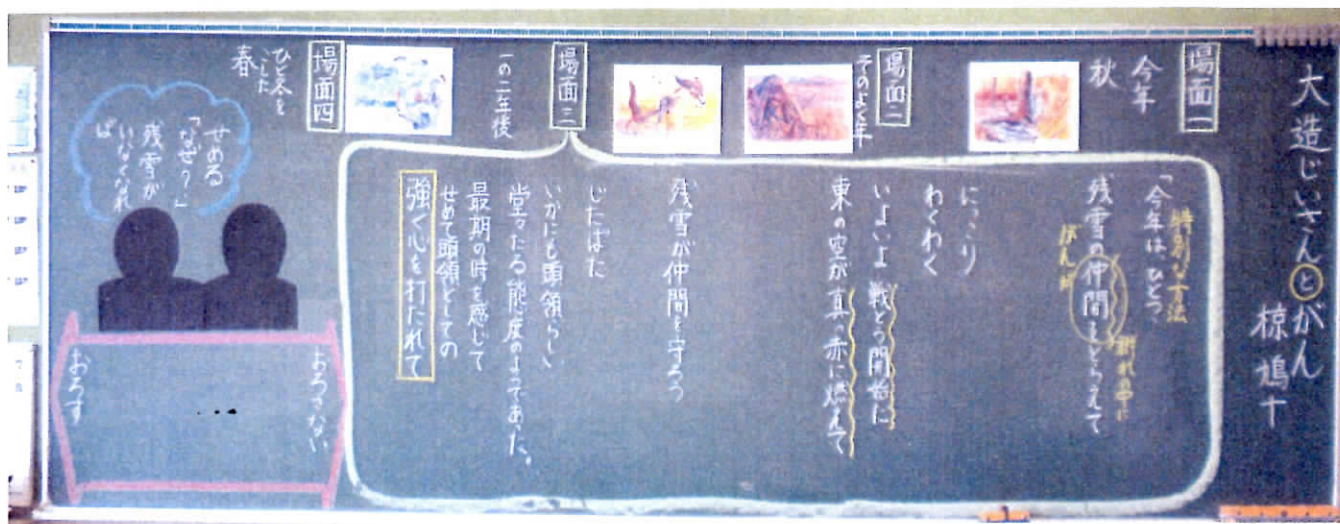 大造じいさんとがん
椋鳩十
場面一
今年
秋
特別な方法
「今年はひとつ、
残雪の仲間をとらえて
群れの中に
にっこり
わくわく
場面二
そのよく年
いよいよ戦とう開始だ
東の空が真っ赤に燃えて
場面三
一の二年後
残雪が仲間を守ろう
じたばた
いかにも頭領らしい
堂々たる態度のようであった。
最期の時を感じて
せめて頭領としての
強く心を打たれて
場面四
ひと冬を
こした
春
せめる
「なぜ?」
残雪が
いなくなれ
ば
おろさない
・・・
おろす